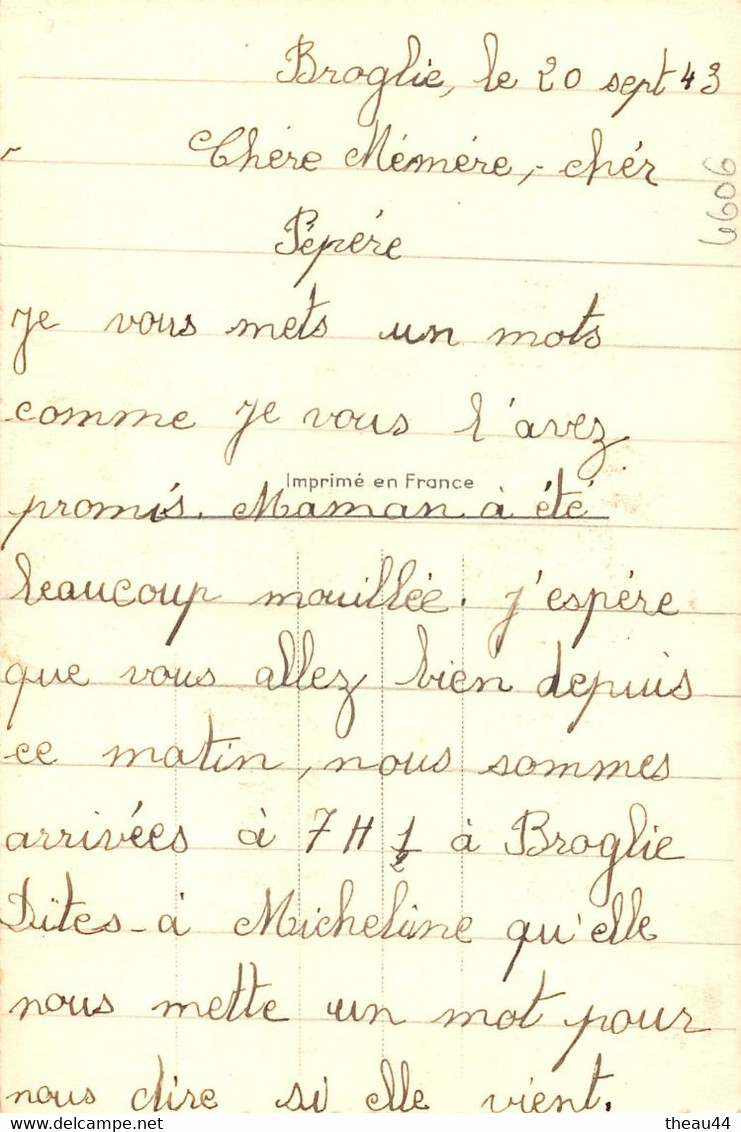 Broglie, le 20 sept 43
Chère Mémère, - chér
Pépére
6606
je vous mets un mots
comme je vous l'avez
Imprimé en France
promis. Maman à été
beaucoup mouillée. j'espére
que vous allez bien depuis
ce matin, nous sommes
arrivées à 7 H 1/2 à Broglie
Dîtes-à Micheline qu'elle
nous mette un mot pour
nous dire si elle vient.
theau44